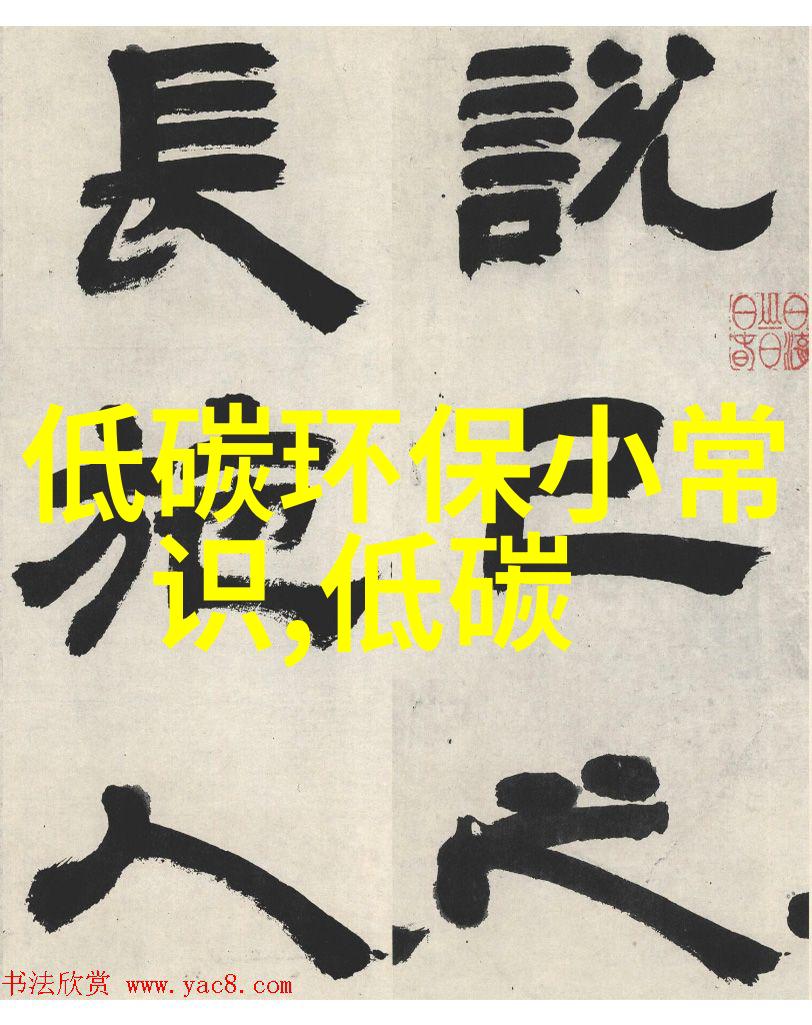 說己之
長施人
低碳环保小常
识,低碳
书法欣赏 www.yac8.com